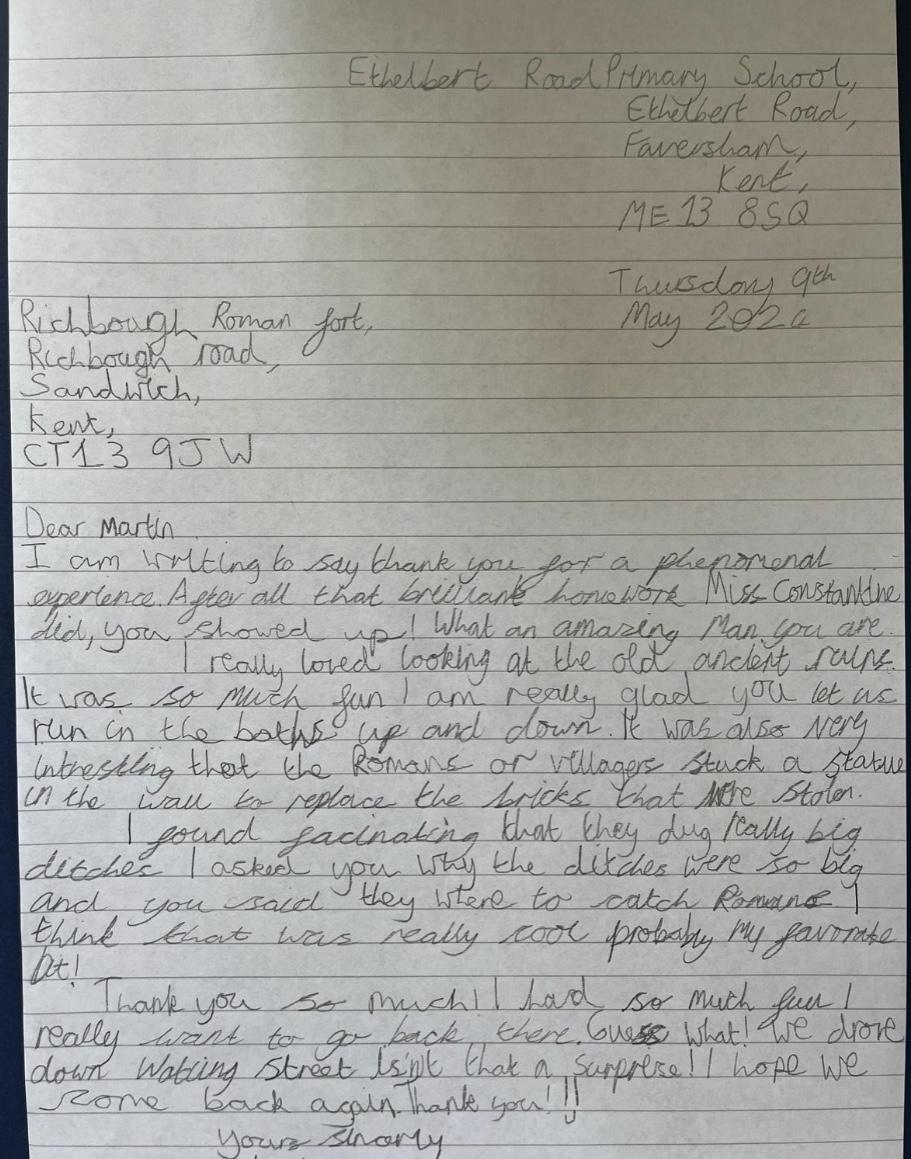 Ethelbert Road Primary School,
Ethelbert Road,
Faversham,
Kent,
ME13 8SQ
Thursday 9th
May 202
Richbough Roman fort,
Richbough road,
Sandwich,
Kent,
CT13 9JW
Dear Martin
I am writing to say thank you for a phenomenal
experience. After all that brilliant homework Miss Constantine
did, you showed up! What an amazing Man you are.
I really loved looking at the old ancient ruins.
It was so much fun I am really glad you let us
run in the baths up and down. It was also very
intresting that the Romans or villagers stuck a statue
in the wall to replace the bricks that were stolen.
I found facinating that they dug really big
ditches I asked you why the ditches were so big
and you said they where to catch Romans. I
think that was really cool probably my favorite
bit!
Thank you so much! I had so much fun I
really want to go back there. Guess what! We drove
down Watling Street Isn't that a surprise! I hope we
come back again. Thank you!!!
Yours